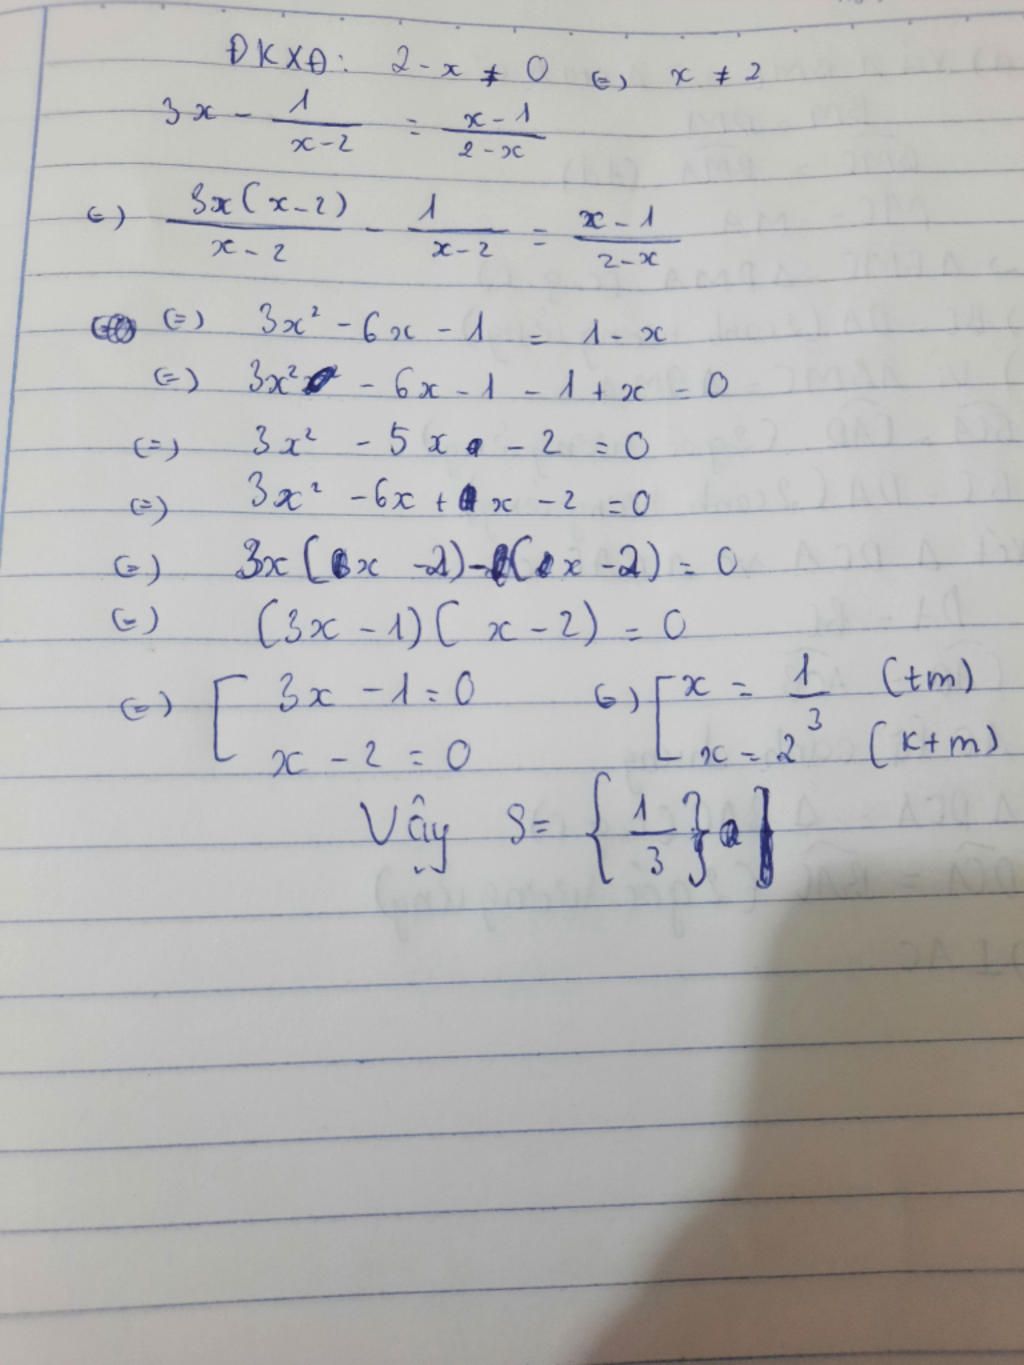 ĐKXĐ: 2 - x ≠ 0 (=) x ≠ 2
3x - 1/(x-2) = (x-1)/(2-x)
(=) 3x(x-2)/(x-2) - 1/(x-2) = (x-1)/(2-x)
(=) 3x² - 6x - 1 = 1 - x
(=) 3x² - 6x - 1 - 1 + x = 0
(=) 3x² - 5x - 2 = 0
(=) 3x² - 6x + x - 2 = 0
(=) 3x(x - 2) - (x - 2) = 0
(=) (3x - 1)(x - 2) = 0
(=) [ 3x - 1 = 0 (=) [ x = 1/3 (tm)
x - 2 = 0 x = 2 (ktm)
Vậy S = {1/3}